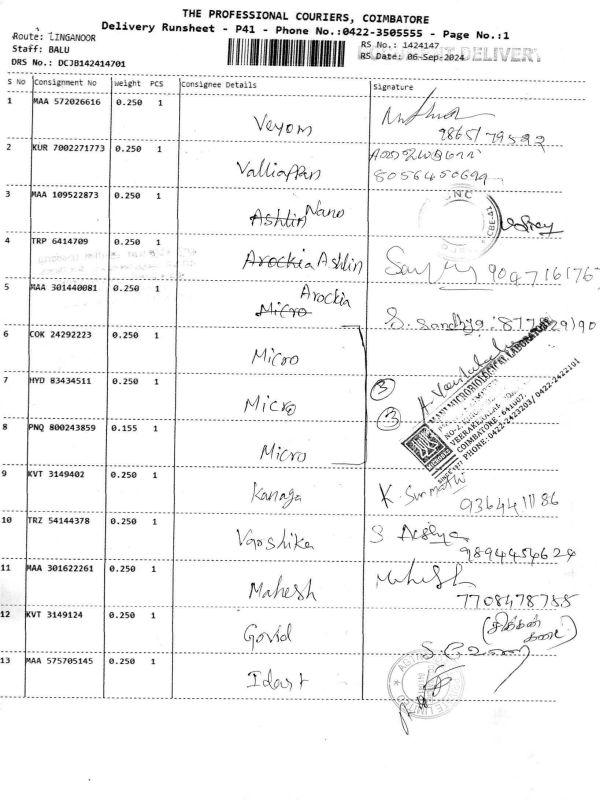 THE PROFESSIONAL COURIERS, COIMBATORE
Delivery Runsheet - P41 - Phone No.:0422-3505555 - Page No.:1
Route: LINGANOOR
Staff: BALU
DRS No.: DCJB142414701
RS No.: 1424147
RS Date: 06-Sep-2024
DELIVERY
S No Consignment No Weight PCS Consignee Details Signature
1 MAA 572026616 0.250 1 Veyom
9865179522
2 KUR 7002271773 0.250 1 Valliappan
8056450694
3 MAA 109522873 0.250 1 Ashlin Nano
CBE-41
4 TRP 6414709 0.250 1 Arockia Ashlin
9047161767
5 MAA 301440081 0.250 1 Micro Arockia
S. Sandhya
6 COK 24292223 0.250 1 Micro
7 HYD 83434511 0.250 1 Micro
3
8 PNQ 800243859 0.155 1 Micro
3
MICROBIOLOGICAL LABORATORY
COIMBATORE - 641007.
PHONE: 0422-2423203/ 0422-2422101
SINCE 1977
9 KVT 3149402 0.250 1 Kanaga
K. Sumathi
936441186
10 TRZ 54144378 0.250 1 Varshika
9894454624
11 MAA 301622261 0.250 1 Mahesh
Mahesh
7708478755
12 KVT 3149124 0.250 1 Govid
13 MAA 575705145 0.250 1 Idart